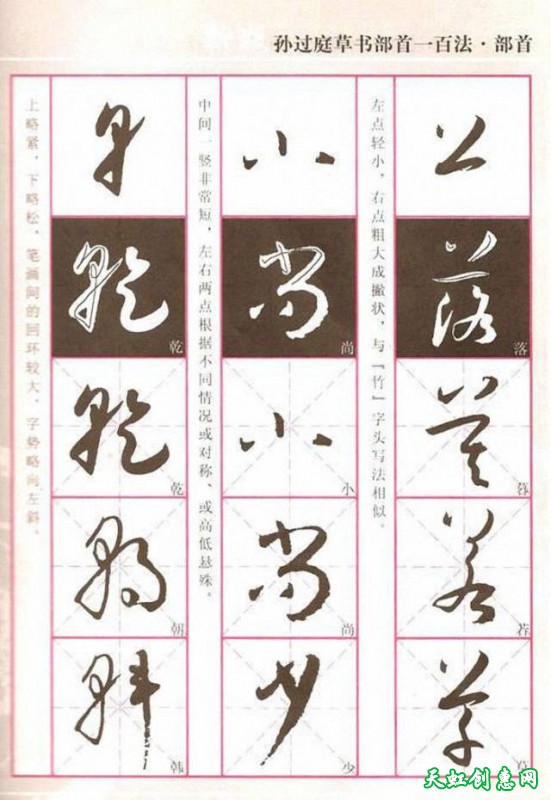 孙过庭草书部首一百法·部首
左点轻小，右点粗大成撇状，与『竹』字头写法相似。
落
若
草
中间一竖非常短，左右两点根据不同情况或对称、或高低悬殊。
尚
小
尚
少
上略紧，下略松，笔画间的回环较大，字势略向左斜。
乾
乾
朝
韩
天虹创意网